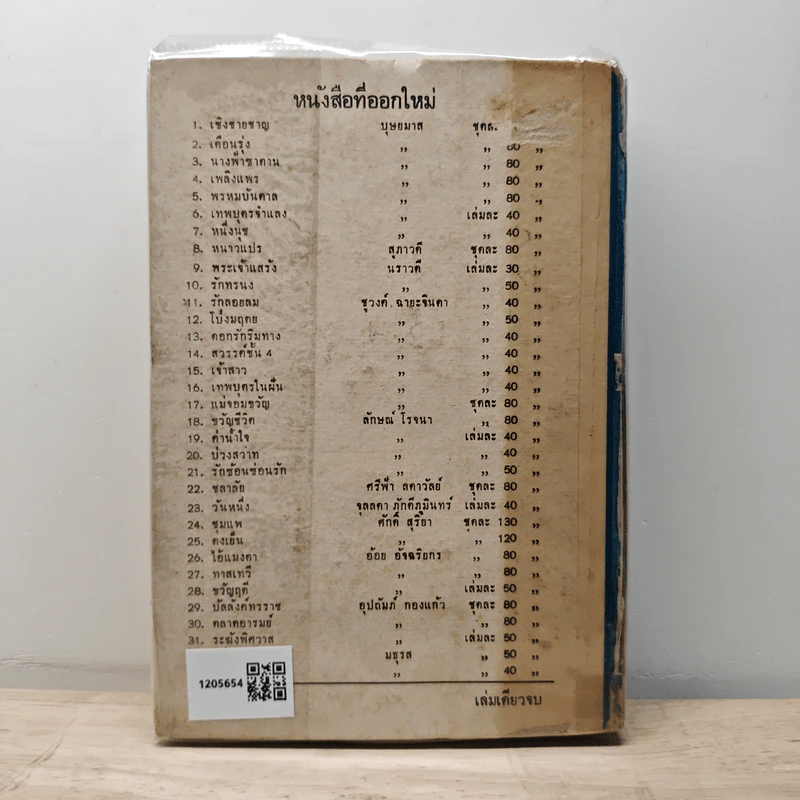 หนังสือที่ออกใหม่
1. เชิงชายชาญ บุษยมาส ชุดละ
2. เดือนรุ่ง ,, ,, 80 ,,
3. นางฟ้าซาตาน ,, ,, 80 ,,
4. เพลิงแพร ,, ,, 80 ,,
5. พรหมบันดาล ,, ,, 80 ,,
6. เทพบุตรจำแลง ,, เล่มละ 40 ,,
7. หนึ่งนุช ,, ,, 40 ,,
8. หนาวแปร สุภาวดี ชุดละ 80 ,,
9. พระเจ้าแสรัง นราวดี เล่มละ 30 ,,
10. รักทรนง ,, ,, 50 ,,
11. รักลอยลม ชูวงศ์ ฉายะจินดา ,, 40 ,,
12. โป่งมฤตยู ,, ,, 50 ,,
13. ดอกรักริมทาง ,, ,, 40 ,,
14. สวรรค์ชั้น 4 ,, ,, 40 ,,
15. เจ้าสาว ,, ,, 40 ,,
16. เทพบุตรในฝัน ,, ,, 40 ,,
17. แม่จอมขวัญ ,, ชุดละ 80 ,,
18. ขวัญชีวิต ลักษณ์ โรจนา ,, 80 ,,
19. ค่าน้ำใจ ,, เล่มละ 40 ,,
20. บ่วงสวาท ,, ,, 40 ,,
21. รักซ้อนซ่อนรัก ,, ,, 50 ,,
22. ชลาลัย ศรีฟ้า ลดาวัลย์ ชุดละ 80 ,,
23. วันหนึ่ง จุลลดา ภักดีภูมินทร์ เล่มละ 40 ,,
24. ชุมแพ ศักดิ์ สุริยา ชุดละ 130 ,,
25. ดงเย็น ,, ,, 120 ,,
26. ไอ้แมงดา อ้อย อัจฉริยกร ,, 80 ,,
27. ทาสเทวี ,, ,, 80 ,,
28. ขวัญฤดี ,, เล่มละ 50 ,,
29. บัลลังก์ทรราช อุปถัมภ์ กองแก้ว ชุดละ 80 ,,
30. ตลาดอารมย์ ,, ,, 80 ,,
31. ระฆังพิศวาส ,, เล่มละ 50 ,,
มธุรส ,, 50 ,,
,, ,, 40 ,,
1205654
เล่มเดียวจบ